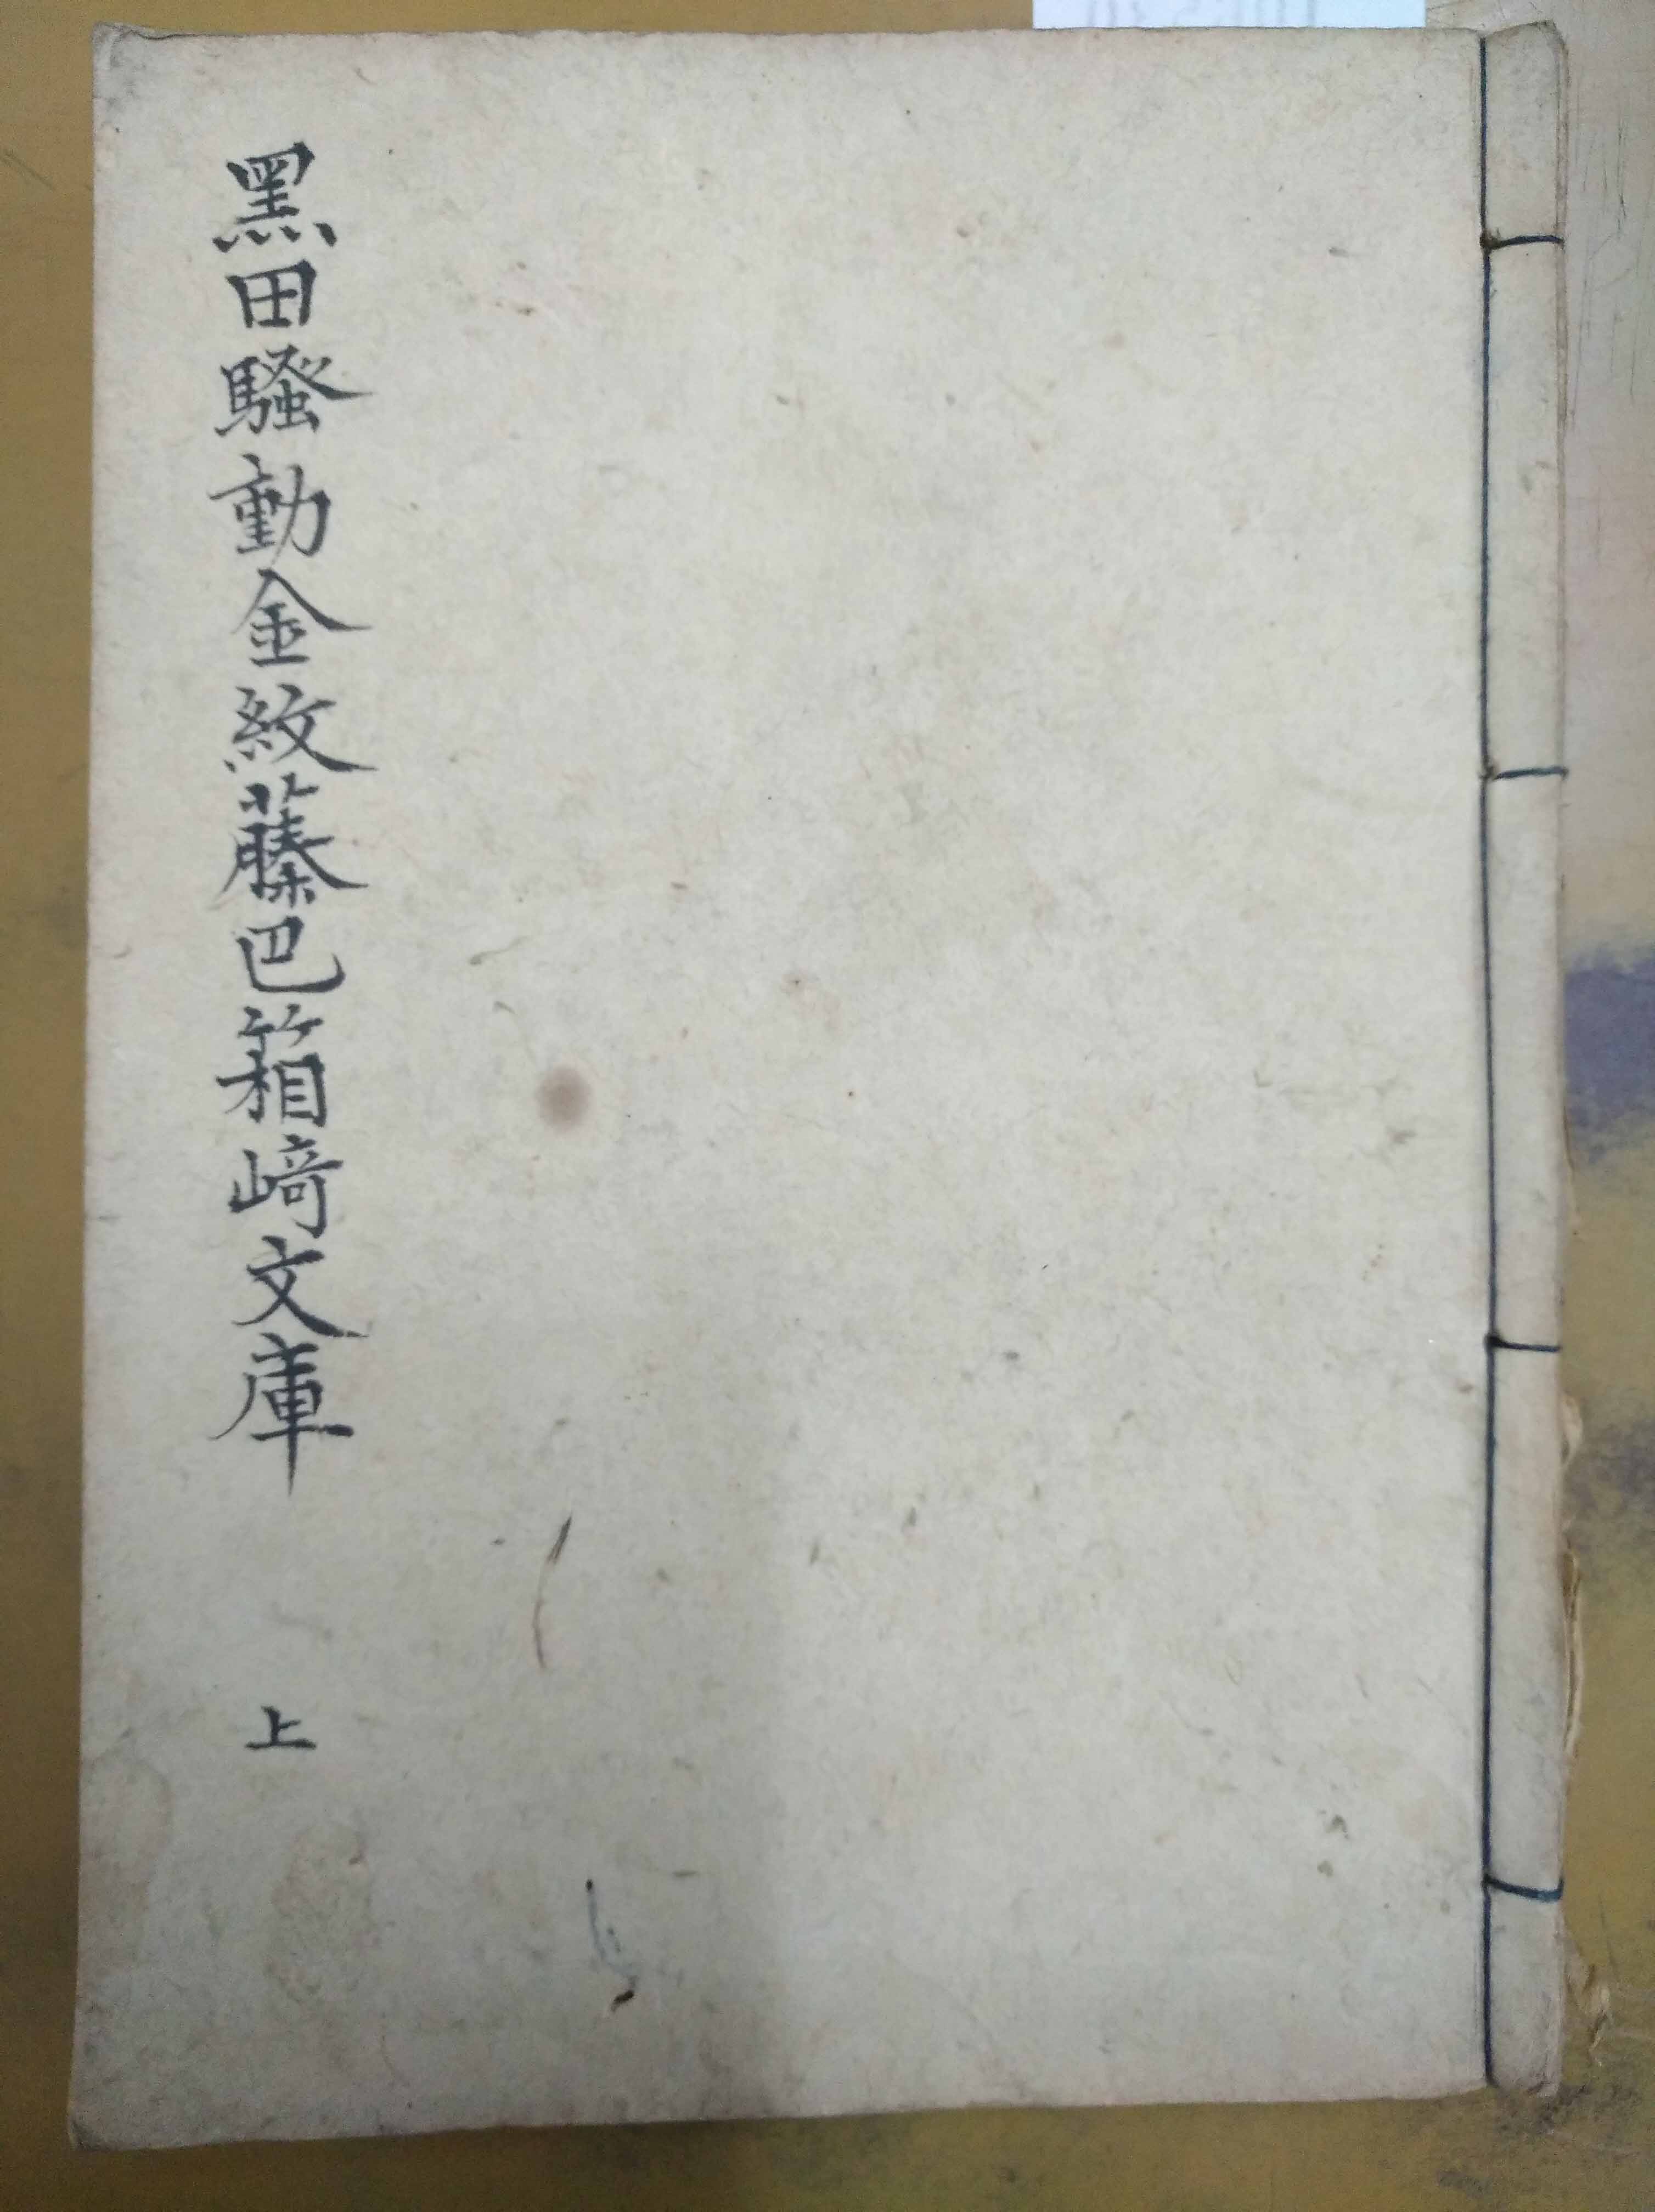 黒田騒動金紋藤巴箱崎文庫
上